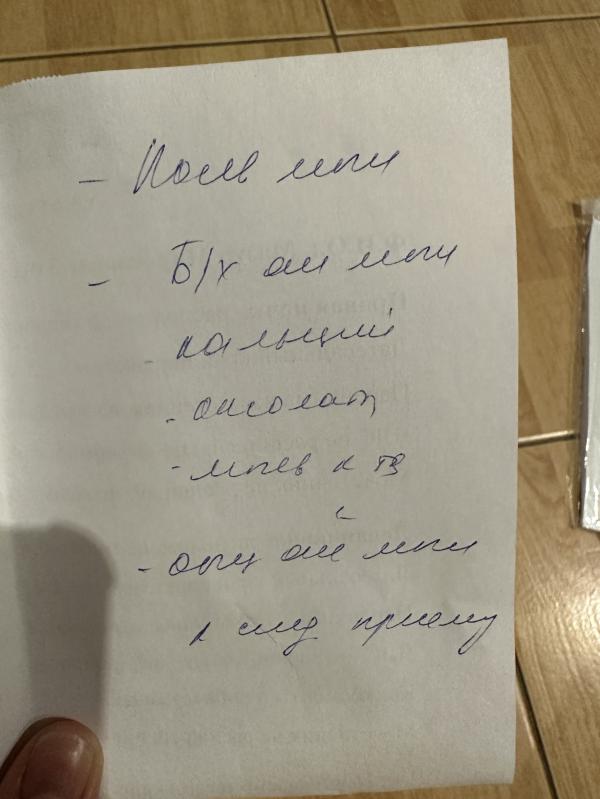 - Посев мочи
- Б/х ан мочи
- кальций
- оксолат
- мочев к та
- общ ан мочи
к след приему